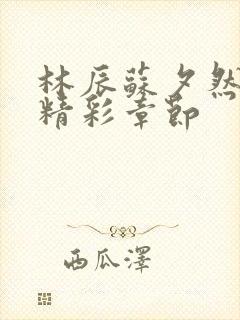 林辰蘇夕然
精彩章節
西瓜澤